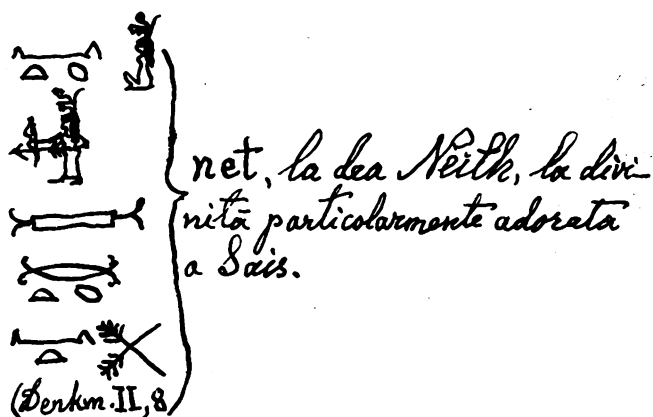 net, la dea Neith, la divi-
nità particolarmente adorata
a Sais.
(Denkm. II, 8